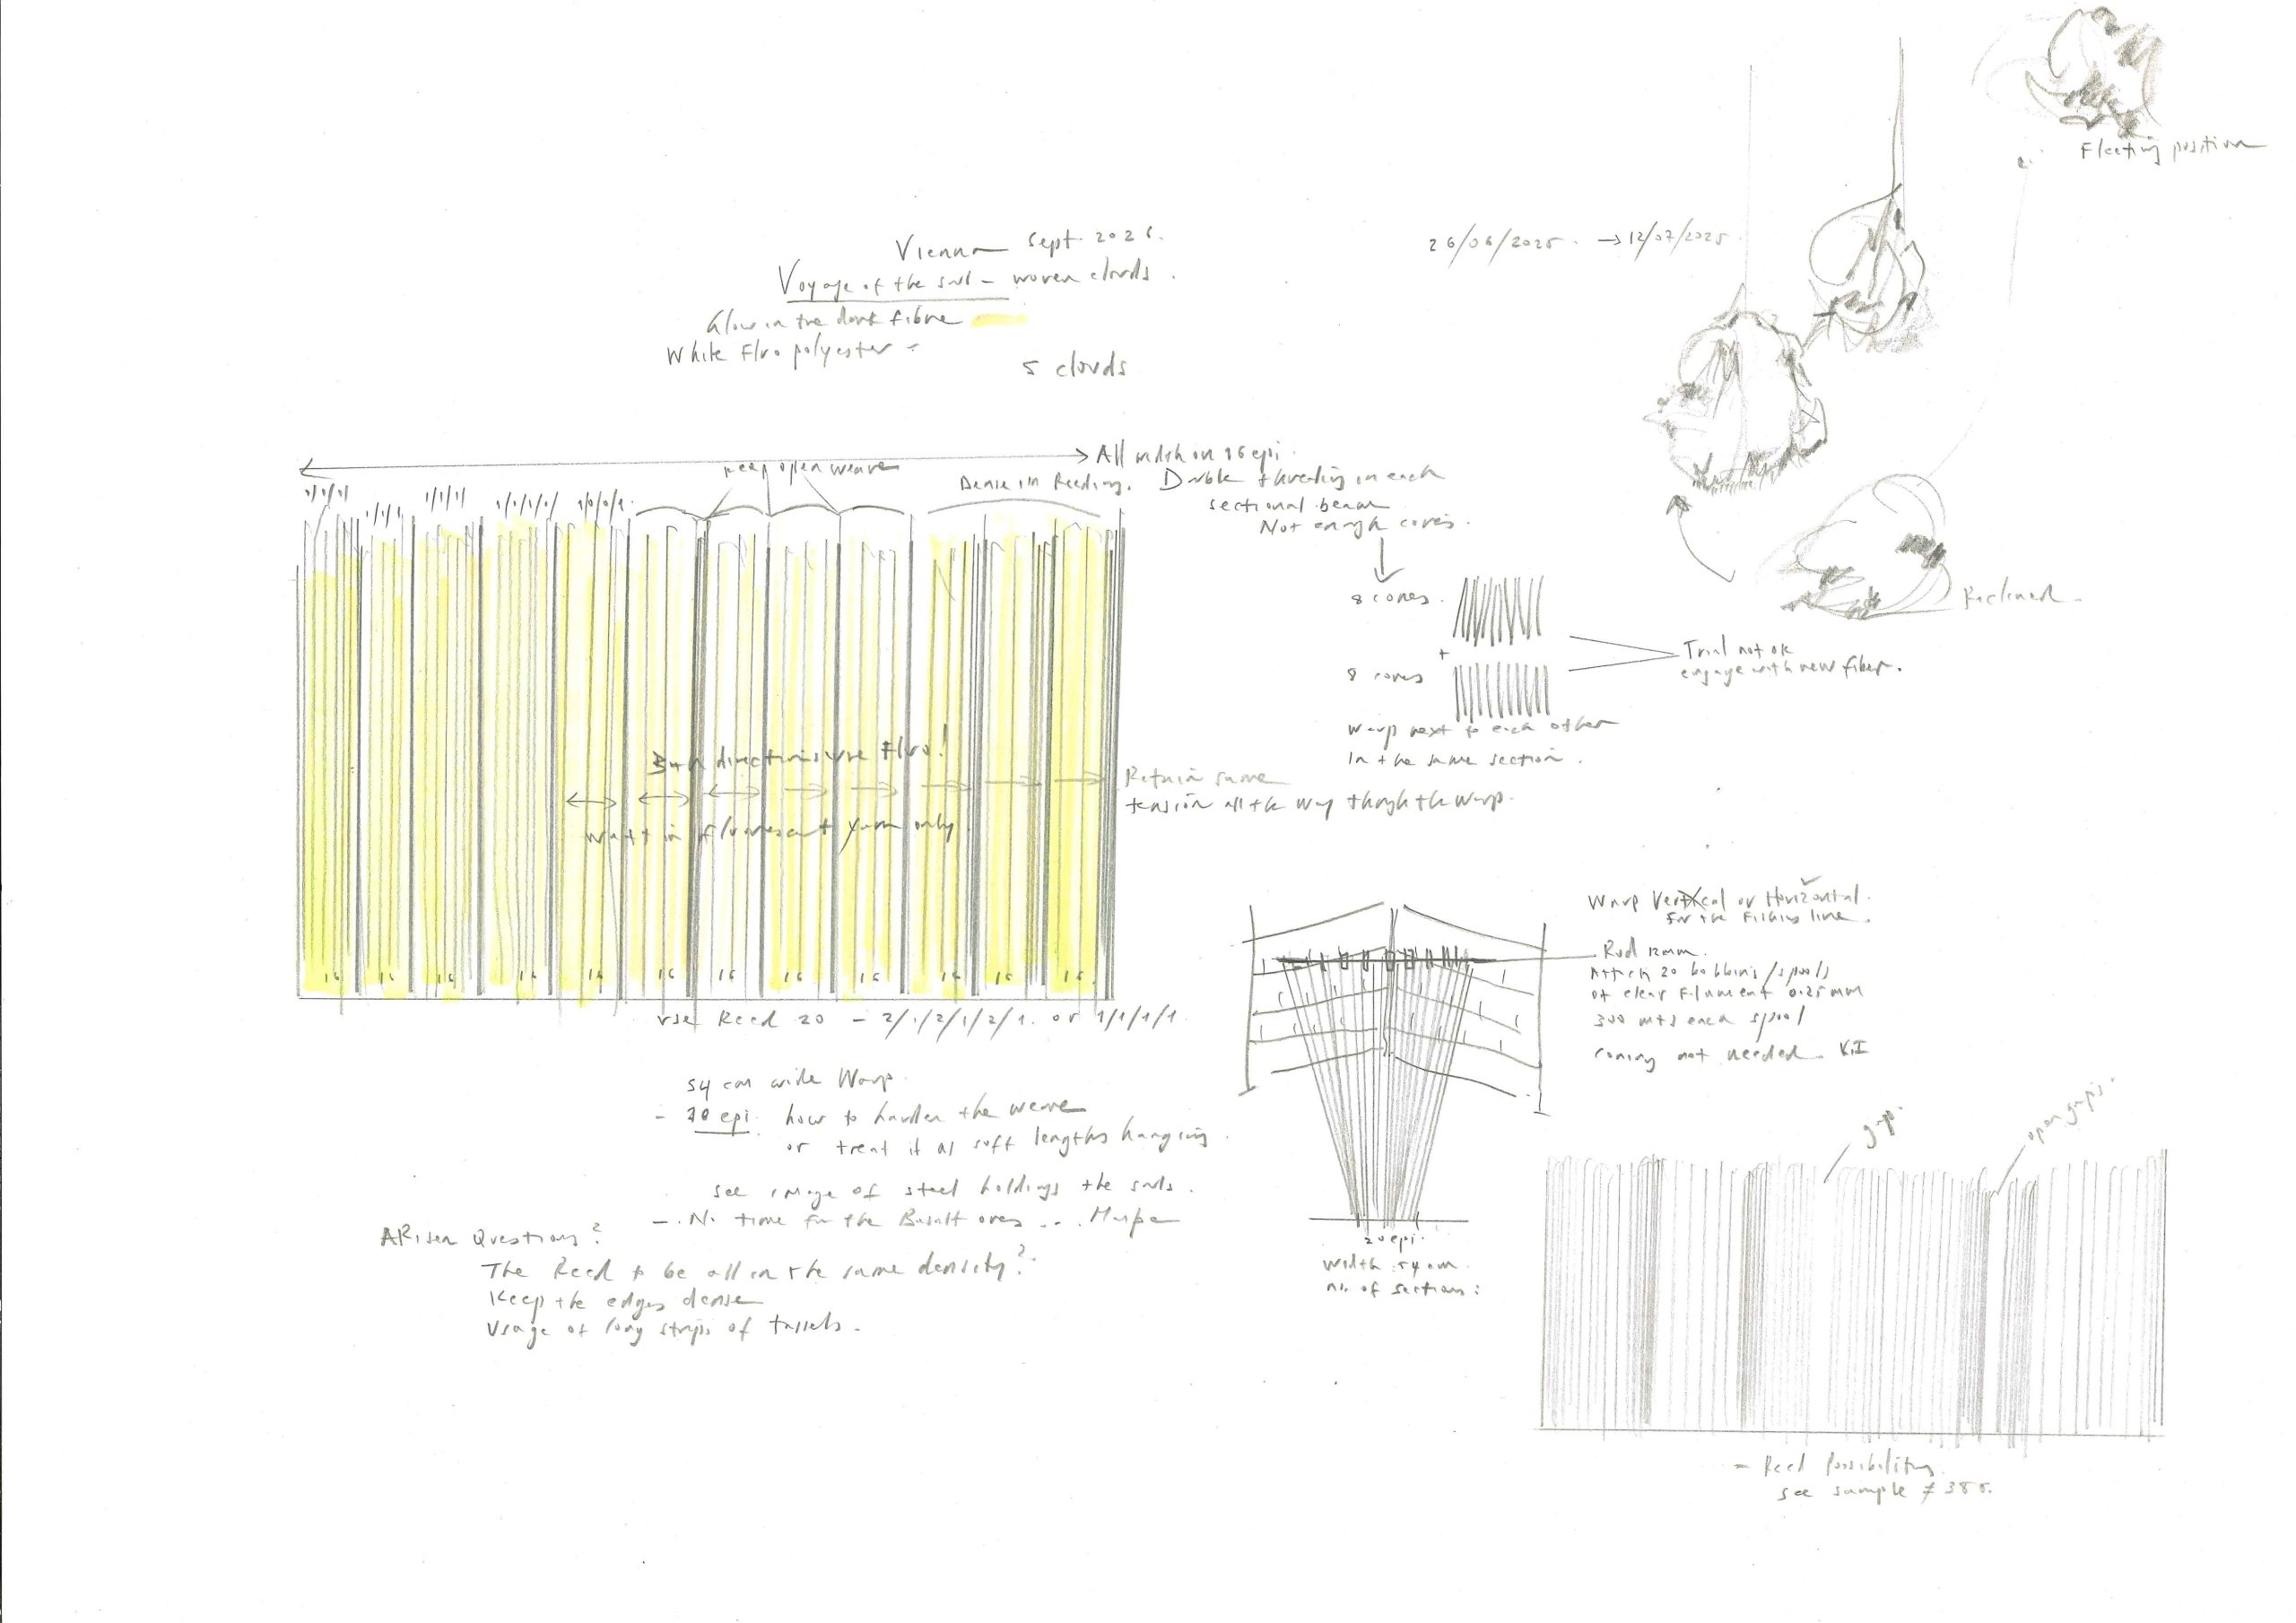 Fleeting position
Vienna Sept. 2025.
26/06/2025. → 12/07/2025
Voyage of the soul - woven clouds.
Glow in the dark fibre
White Fluo polyester =
5 clouds
All width on 16 epi.
Keep open weave
Dense in Reeding. Double threading in each
sectional beam
Not enough cones.
1/1/1/1
1/1/1/
1/1/1/1
1/1/1/1/
1/0/0/1.
8 cones.
+
8 cones
Warp next to each other
In the same section.
Trial not ok
engage with new fiber.
Reclined.
Both directions use Fluo!
Weft in fluorescent yarn only
Retain same
tension all the way though the warp.
16 16 16 16 16 16 16 16 16 16 16 16
use Reed 20 - 2/1/2/1/2/1. or 1/1/1/1
54 cm wide Warp.
- epi. how to harden the weave
or treat it as soft lengths hanging.
see image of steel holdings the souls.
- No time for the Basalt ones ...
ARisen Questions?
The Reed to be all in the same density?
Keep the edges dense
Usage of long strips of tassels.
Warp Vertical or Horizontal.
For the Fishing line.
Rod 12mm.
Attach 20 bobbins/spools
of clear filament 0.25mm
300 mts each spool
coning not needed.
20 epi.
Width 54 cm.
no. of sections:
gap.
open gaps.
- Reed Possibilities
see sample # 385.